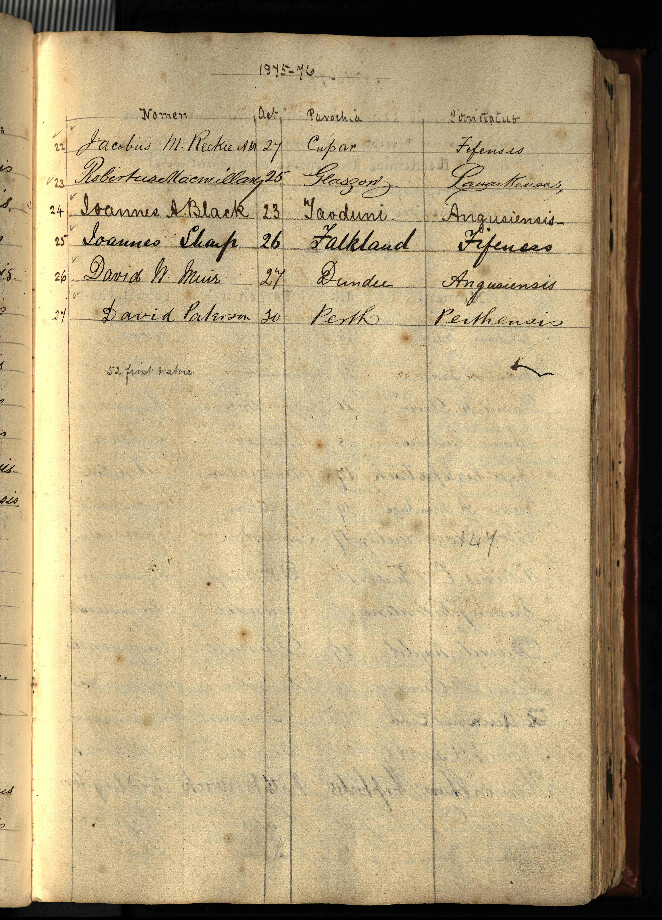 1875-76
Nomen Aet. Parochia Comitatus
22 Jacobus M. Reekie 27 Cupar Fifensis
23 Robertus Macmillan 25 Glasgow
24 Ioannes A. Black 23 Taoduni Angusiensis
25 Ioannes Sharp 26 Falkland Fifensis
26 David W. Muir 27 Dundee Angusiensis
27 David Paterson 30 Perth Perthensis
52 first matric.
147